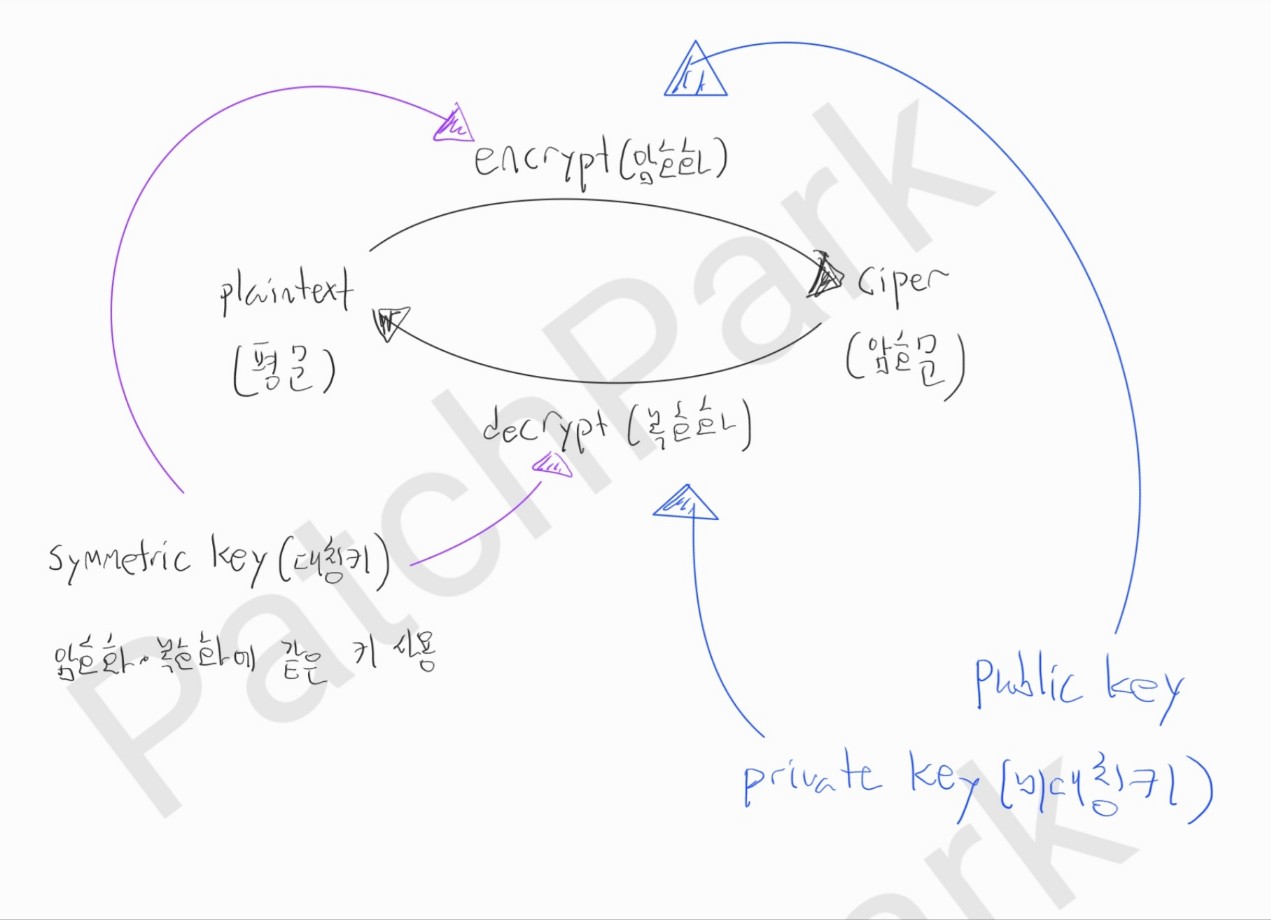 encrypt(암호화)
plaintext
(평문)
ciper
(암호문)
decrypt (복호화)
symmetric key (대칭키)
암호화·복호화에 같은 키 사용
public key
private key (비대칭키)
PatchPark
Park